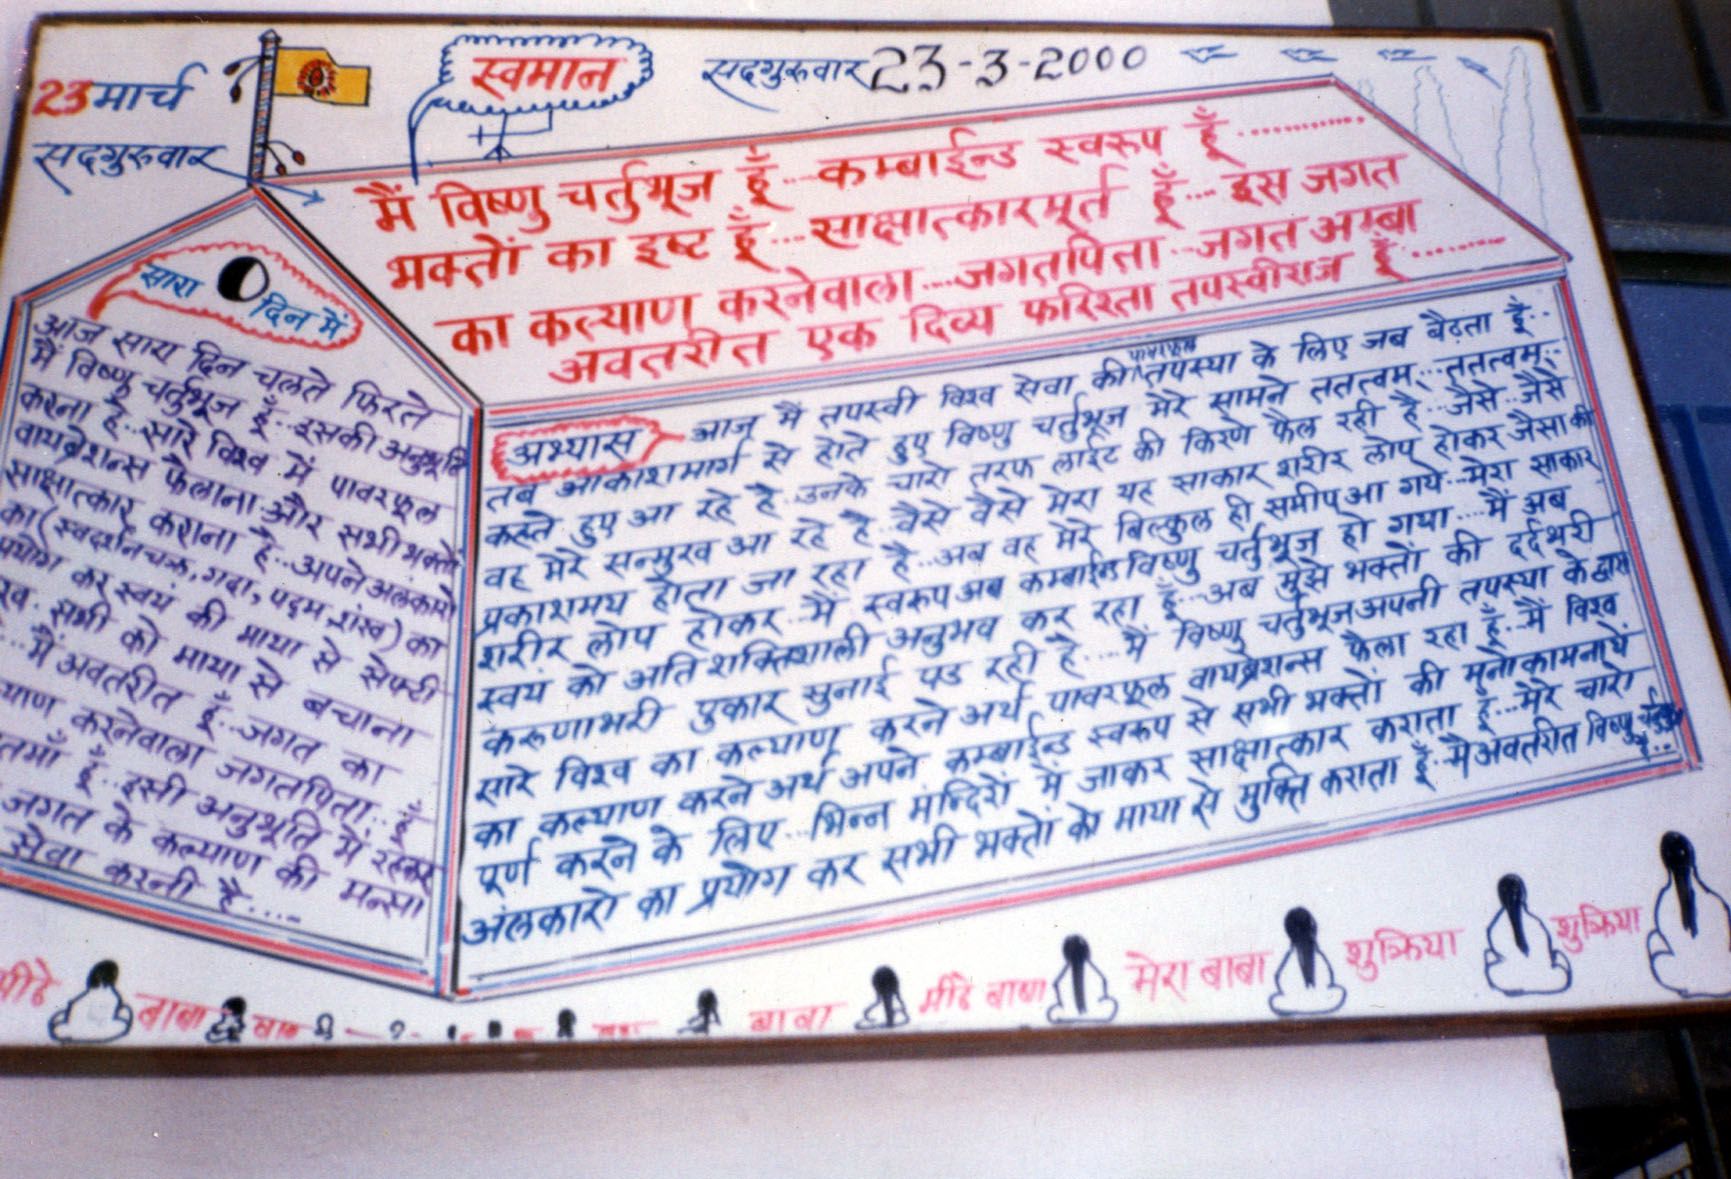 23 मार्च
सदगुरुवार
स्वमान
सदगुरुवार 23-3-2000
मैं विष्णु चर्तुभूज हूँ...कम्बाईन्ड स्वरुप हूँ............
भक्तों का इष्ट हूँ...साक्षात्कारमूर्त हूँ....इस जगत
का कल्याण करनेवाला....जगतपिता...जगत अम्बा
अवतरीत एक दिव्य फरिश्ता तपस्वीराज हूँ..........
सारा दिन में
आज सारा दिन चलते फिरते
मैं विष्णु चर्तुभूज हूँ...इसकी अनुभूति
करना है...सारे विश्व में पावरफूल
वायब्रेशन्स फैलाना और सभी भक्तों
साक्षात्कार कराना है...अपने अलंकारो
का (स्वदर्शनचक्र, गदा, पद्दम, शंख) का
प्रयोग कर स्वयं की माया से सेफ्टी
सभी को माया से बचाना
...मैं अवतरीत हूँ...जगत का
करनेवाला जगतपिता...हूँ
हूँ...इसी अनुभूति में रहकर
जगत के कल्याण की मन्सा
सेवा करनी है....
अभ्यास आज मैं तपस्वी विश्व सेवा की पावरफूल तपस्या के लिए जब बैठता हूँ..
तब आकाशमार्ग से होते हुए विष्णु चर्तुभूज मेरे सामने ततत्वम्...ततत्वम्..
कहते हुए आ रहे है...उनके चारो तरफ लाईट की किरणे फैल रही है...जैसे...जैसे
वह मेरे सन्मुख आ रहे है..वैसे वैसे मेरा यह साकार शरीर लोप होकर जैसा की
प्रकाशमय होता जा रहा है...अब वह मेरे बिल्कुल ही समीप आ गये...मेरा साकार
शरीर लोप होकर...मैं स्वरुप अब कम्बाईन्ड विष्णु चर्तुभूज हो गया...मैं अब
स्वयं को अति शक्तिशाली अनुभव कर रहा हूँ...अब मुझे भक्तों की दर्दभरी
करुणाभरी पुकार सुनाई पड रही है....मैं विष्णु चर्तुभूज अपनी तपस्या के द्वारा
सारे विश्व का कल्याण करने अर्थ पावरफूल वायब्रेशन्स फैला रहा हूँ...मैं विश्व
का कल्याण करने अर्थ अपने कम्बाईन्ड स्वरुप से सभी भक्तों की मनोकामनाये
पूर्ण करने के लिए...भिन्न मंन्दिरों में जाकर साक्षात्कार कराता हूँ...मेरे चारो
अंलकारो का प्रयोग कर सभी भक्तों को माया से मुक्ति कराता हूँ..मैं अवतरीत विष्णु चर्तुभूज
हूँ..
मीठे बाबा बाबा मीठे बाबा मेरा बाबा शुक्रिया शुक्रिया